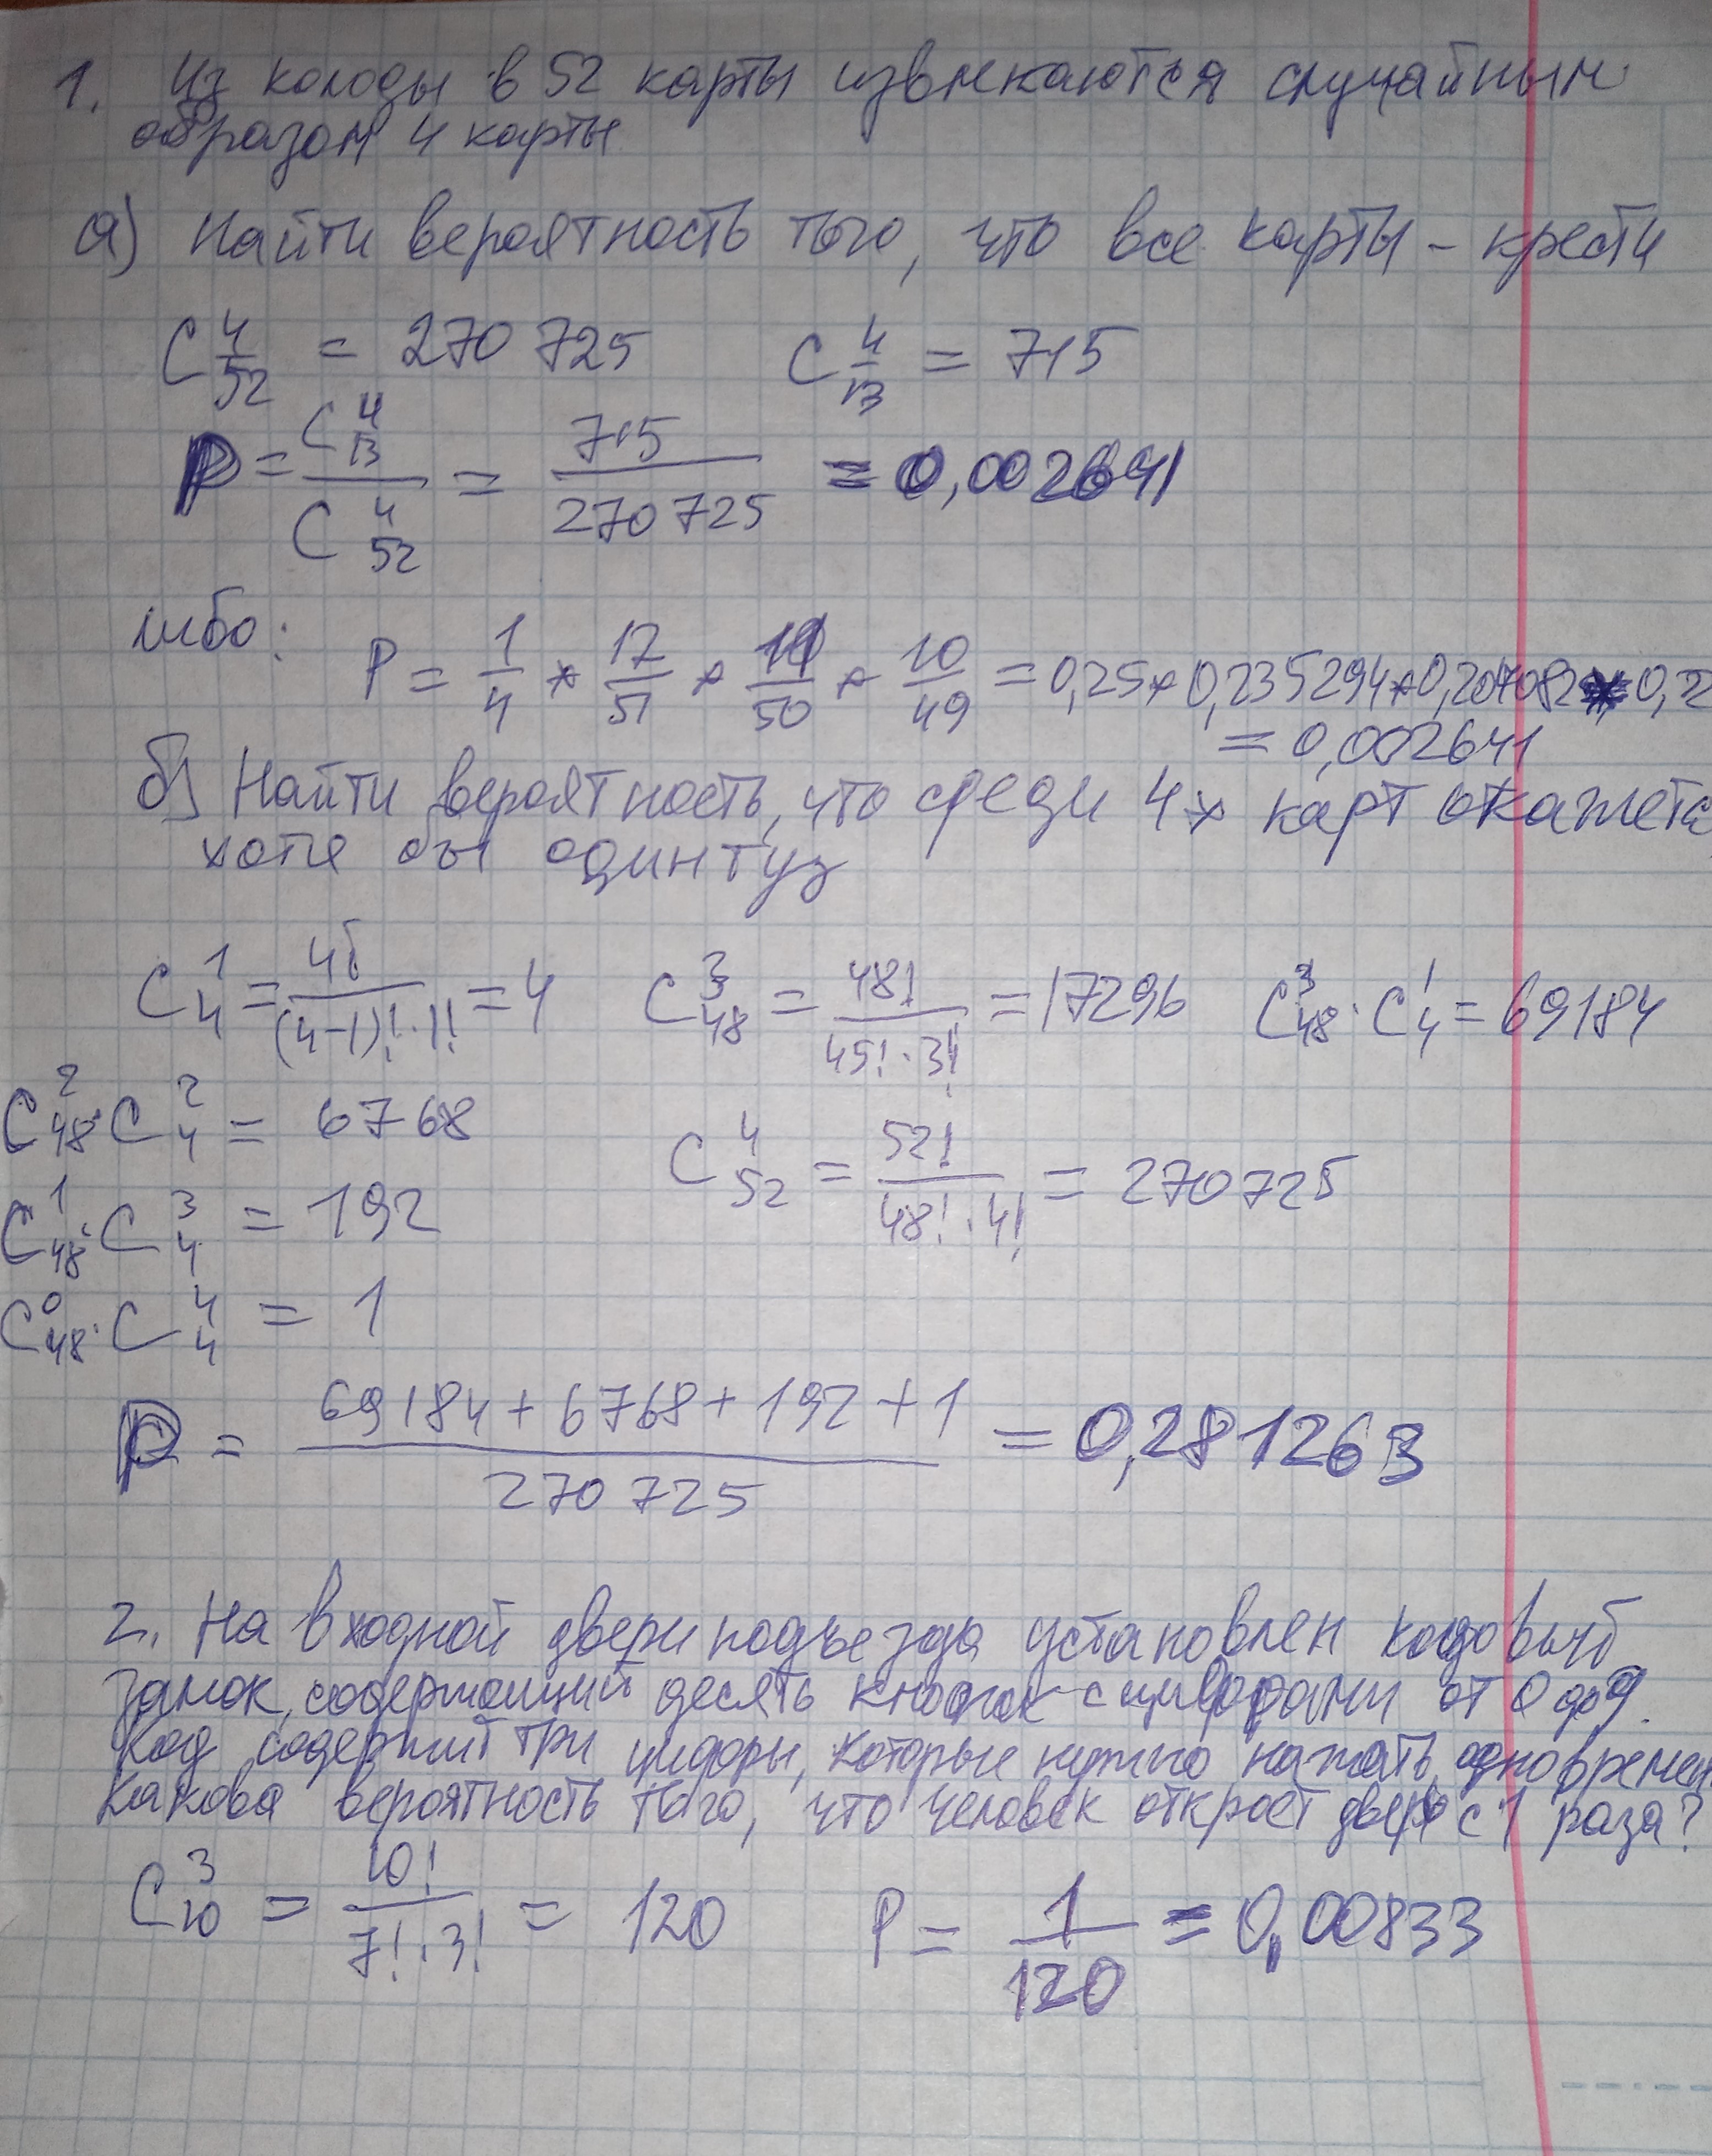 1. Из колоды в 52 карты извлекаются случайным
образом 4 карты
а) Найти вероятность того, что все карты - крести
C 4/52 = 270 725   C 4/13 = 715
P = C 4/13 / C 4 52 = 715 / 270 725 = 0,002641
либо: P = 1/4 * 12/51 * 11/50 * 10/49 = 0,25*0,235294*0,20 * 0,2
= 0,002641
б) Найти вероятность, что среди 4х карт окажется
хотя бы один туз
C 1 4 = 4! / (4-1)!·1! = 4   C 3 48 = 48! / 45!·3! = 17296   C 3 48 · C 1 4 = 69184
C 2 48 · C 2 4 = 6768   C 4 52 = 52! / 48!·4! = 270725
C 1 48 · C 3 4 = 192
C 0 48 · C 4 4 = 1
P = 69184 + 6768 + 192 + 1 / 270 725 = 0,281263
2. На входной двери подъезда установлен кодовый
замок, содержащий десять кнопок с цифрами от 0 до 9.
Код содержит три цифры, которые нужно нажать одновремен
Какова вероятность того, что человек откроет дверь с 1 раза?
C 3 10 = 10! / 7!·3! = 120   P = 1/120 = 0,00833